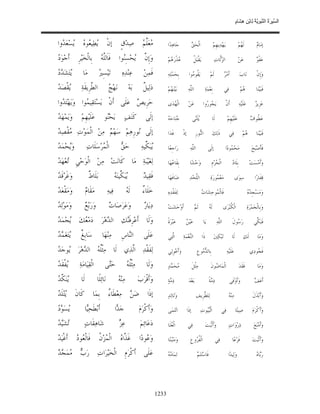 السِّيرَةُ النَّبَوِيَّةُ لِابْنِ هِشَامٍ
إِمَامٌ لَهُمْ يَهْدِيهِمُ الْحَقَّ جَاهِدًا مُعَلِّمُ صِدْقٍ إِنْ يُطِيعُوهُ يُسْعَدُوا
عَفُوٌّ عَنْ الزَّلَّاتِ يَقْبَلُ عُذْرَهُمْ وَإِنْ يُحْسِنُوا فَاَللَّهُ بِالْخَيْرِ أَجْوَدُ
وَإِنْ نَابَ أَمْرٌ لَمْ يَقُومُوا بِحَمْلِهِ فَمِنْ عِنْدِهِ تَيْسِيرُ مَا يُتَشَدَّدُ
فَبَيْنَا هُمْ فِي نِعْمَةِ اللَّهِ بَيْنَهُمْ دَلِيلٌ بِهِ نَهْجُ الطَّرِيقَةِ يُقْصَدُ
عَزِيزٌ عَلَيْهِ أَنْ يَجُورُوا عَنْ الْهُدَى حَرِيصٌ عَلَى أَنْ يَسْتَقِيمُوا وَيَهْتَدُوا
عَطُوفٌ عَلَيْهِمْ لَا يُثَنِّي جَنَاحَهُ إِلَى كَنَفٍ يَحْنُو عَلَيْهِمْ وَيَمْهَدُ
فَبَيْنَا هُمْ فِي ذَلِكَ النُّورِ إِذْ غَدَا إِلَى نُورِهِمْ سَهْمٌ مِنْ الْمَوْتِ مُقْصِدُ
فَأَصْبَحَ مَحْمُودًا إِلَى اللَّهِ رَاجِعًا يُبَكِّيهِ حَقُّ الْمُرْسَلَاتِ وَيُحْمَدُ
وَأَمْسَتْ بِلَادُ الْحُرْمِ وَحْشًا بِقَاعُهَا لِغَيْبَةِ مَا كَانَتْ مِنْ الْوَحْيِ تُعْهَدُ
قِفَارًا سِوَى مَعْمُورَةِ اللَّحْدِ ضَافَهَا فَقِيدٌ يُبَكِّينَهُ بَلَاطٌ وَغَرْقَدُ
وَمَسْجِدُهُ فَالْمُوحِشَاتُ لِفَقْدِهِ خَلَاءٌ لَهُ فِيهِ مَقَامٌ وَمَقْعَدُ
وَبِالْجَمْرَةِ الْكُبْرَى لَهُ ثَمَّ أَوْحَشَتْ دِيَارٌ وَعَرْصَاتٌ وَرَبْعٌ وَمَوْلِدُ
فَبَكِّي رَسُولَ اللَّهِ يَا عَيْنُ عَبْرَةً وَلَا أَعْرِفَنْكِ الدَّهْرَ دَمْعُكِ يُجْمَدُ
وَمَا لَكِ لَا تَبْكِينَ ذَا النِّعْمَةِ الَّتِي عَلَى النَّاسِ مِنْهَا سَابِغٌ يُتَغَمَّدُ
فَجُودِي عَلَيْهِ بِالدُّمُوعِ وَأَعْوِلِي لِفَقْدِ الَّذِي لَا مِثْلُهُ الدَّهْرَ يُوجَدُ
وَمَا فَقَدَ الْمَاضُونَ مِثْلَ مُحَمَّدٍ وَلَا مِثْلُهُ حَتَّى الْقِيَامَةِ يُفْقَدُ
أَعَفَّ وَأَوْفَى ذِمَّةً بَعْدَ ذِمَّةٍ وَأَقْرَبَ مِنْهُ نَائِلًا لَا يُنَكَّدُ
وَأَبْذَلَ مِنْهُ لِلطَّرِيفِ وَتَالِدٍ إِذَا ضَنَّ مِعْطَاءٌ بِمَا كَانَ يُتْلَدُ
وَأَكْرَمَ صِيتًا فِي الْبُيُوتِ إِذَا انْتَمَى وَأَكْرَمَ جَدًّا أَبْطَحِيًّا يُسَوَّدُ
وَأَمْنَعَ ذِرْوَاتٍ وَأَثْبَتَ فِي الْعُلَا دَعَائِمَ عِزٍّ شَاهِقَاتٍ تُشَيَّدُ
وَأَثْبَتَ فَرْعًا فِي الْفُرُوعِ وَمَنْبِتًا وَعُودًا غَذَّاهُ الْمُزْنُ فَالْعُودُ أَغْيَدُ
رَبَّاهُ وَلِيدًا فَاسْتَتَمَّ تَمَامُهُ عَلَى أَكْرَمِ الْخَيْرَاتِ رَبٌّ مُمَجَّدُ
1233